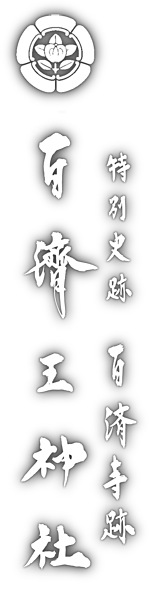 特別史跡 百済寺跡
百濟王神社